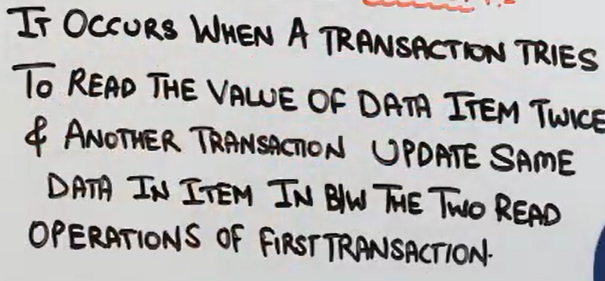 IT OCCURS WHEN A TRANSACTION TRIES
TO READ THE VALUE OF DATA ITEM TWICE
& ANOTHER TRANSACTION UPDATE SAME
DATA IN ITEM IN B/W THE TWO READ
OPERATIONS OF FIRST TRANSACTION.